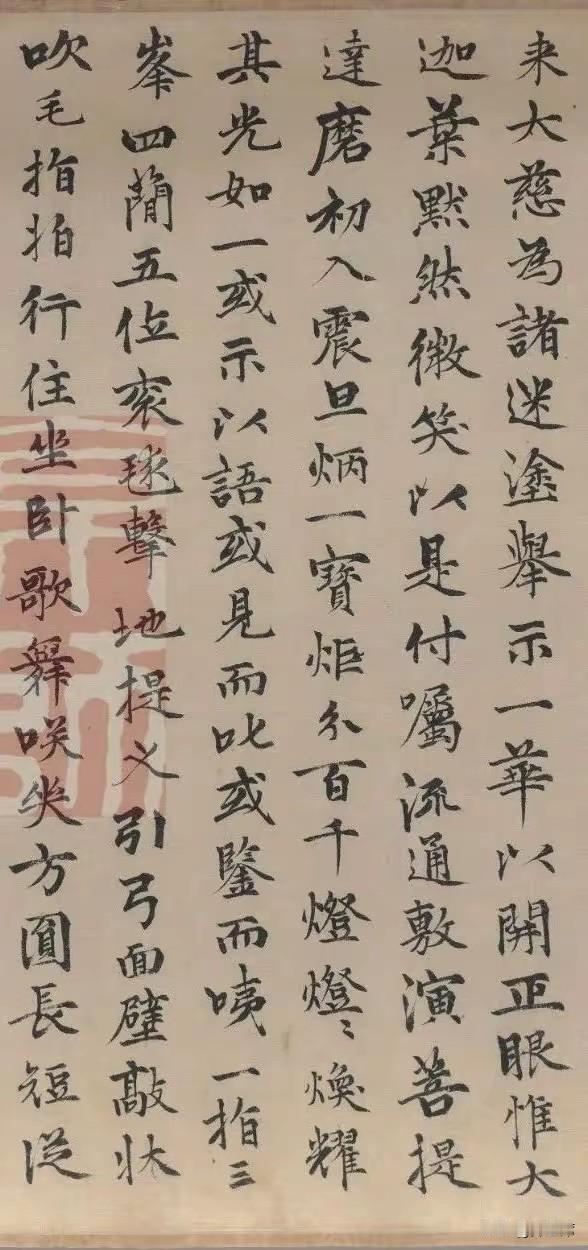 来大慈為諸迷塗舉示一華以開正眼惟大
迦葉默然微笑以是付囑流通敷演菩提
達磨初入震旦炳一寶炬分百千燈燈〻煥耀
其光如一或示以語或見而叱或鑒而咦一指三
峯四蕳五位衮毬擊地提叉引弓面壁敲牀
吹毛指拍行住坐卧歌舞咲哭方圓長短從